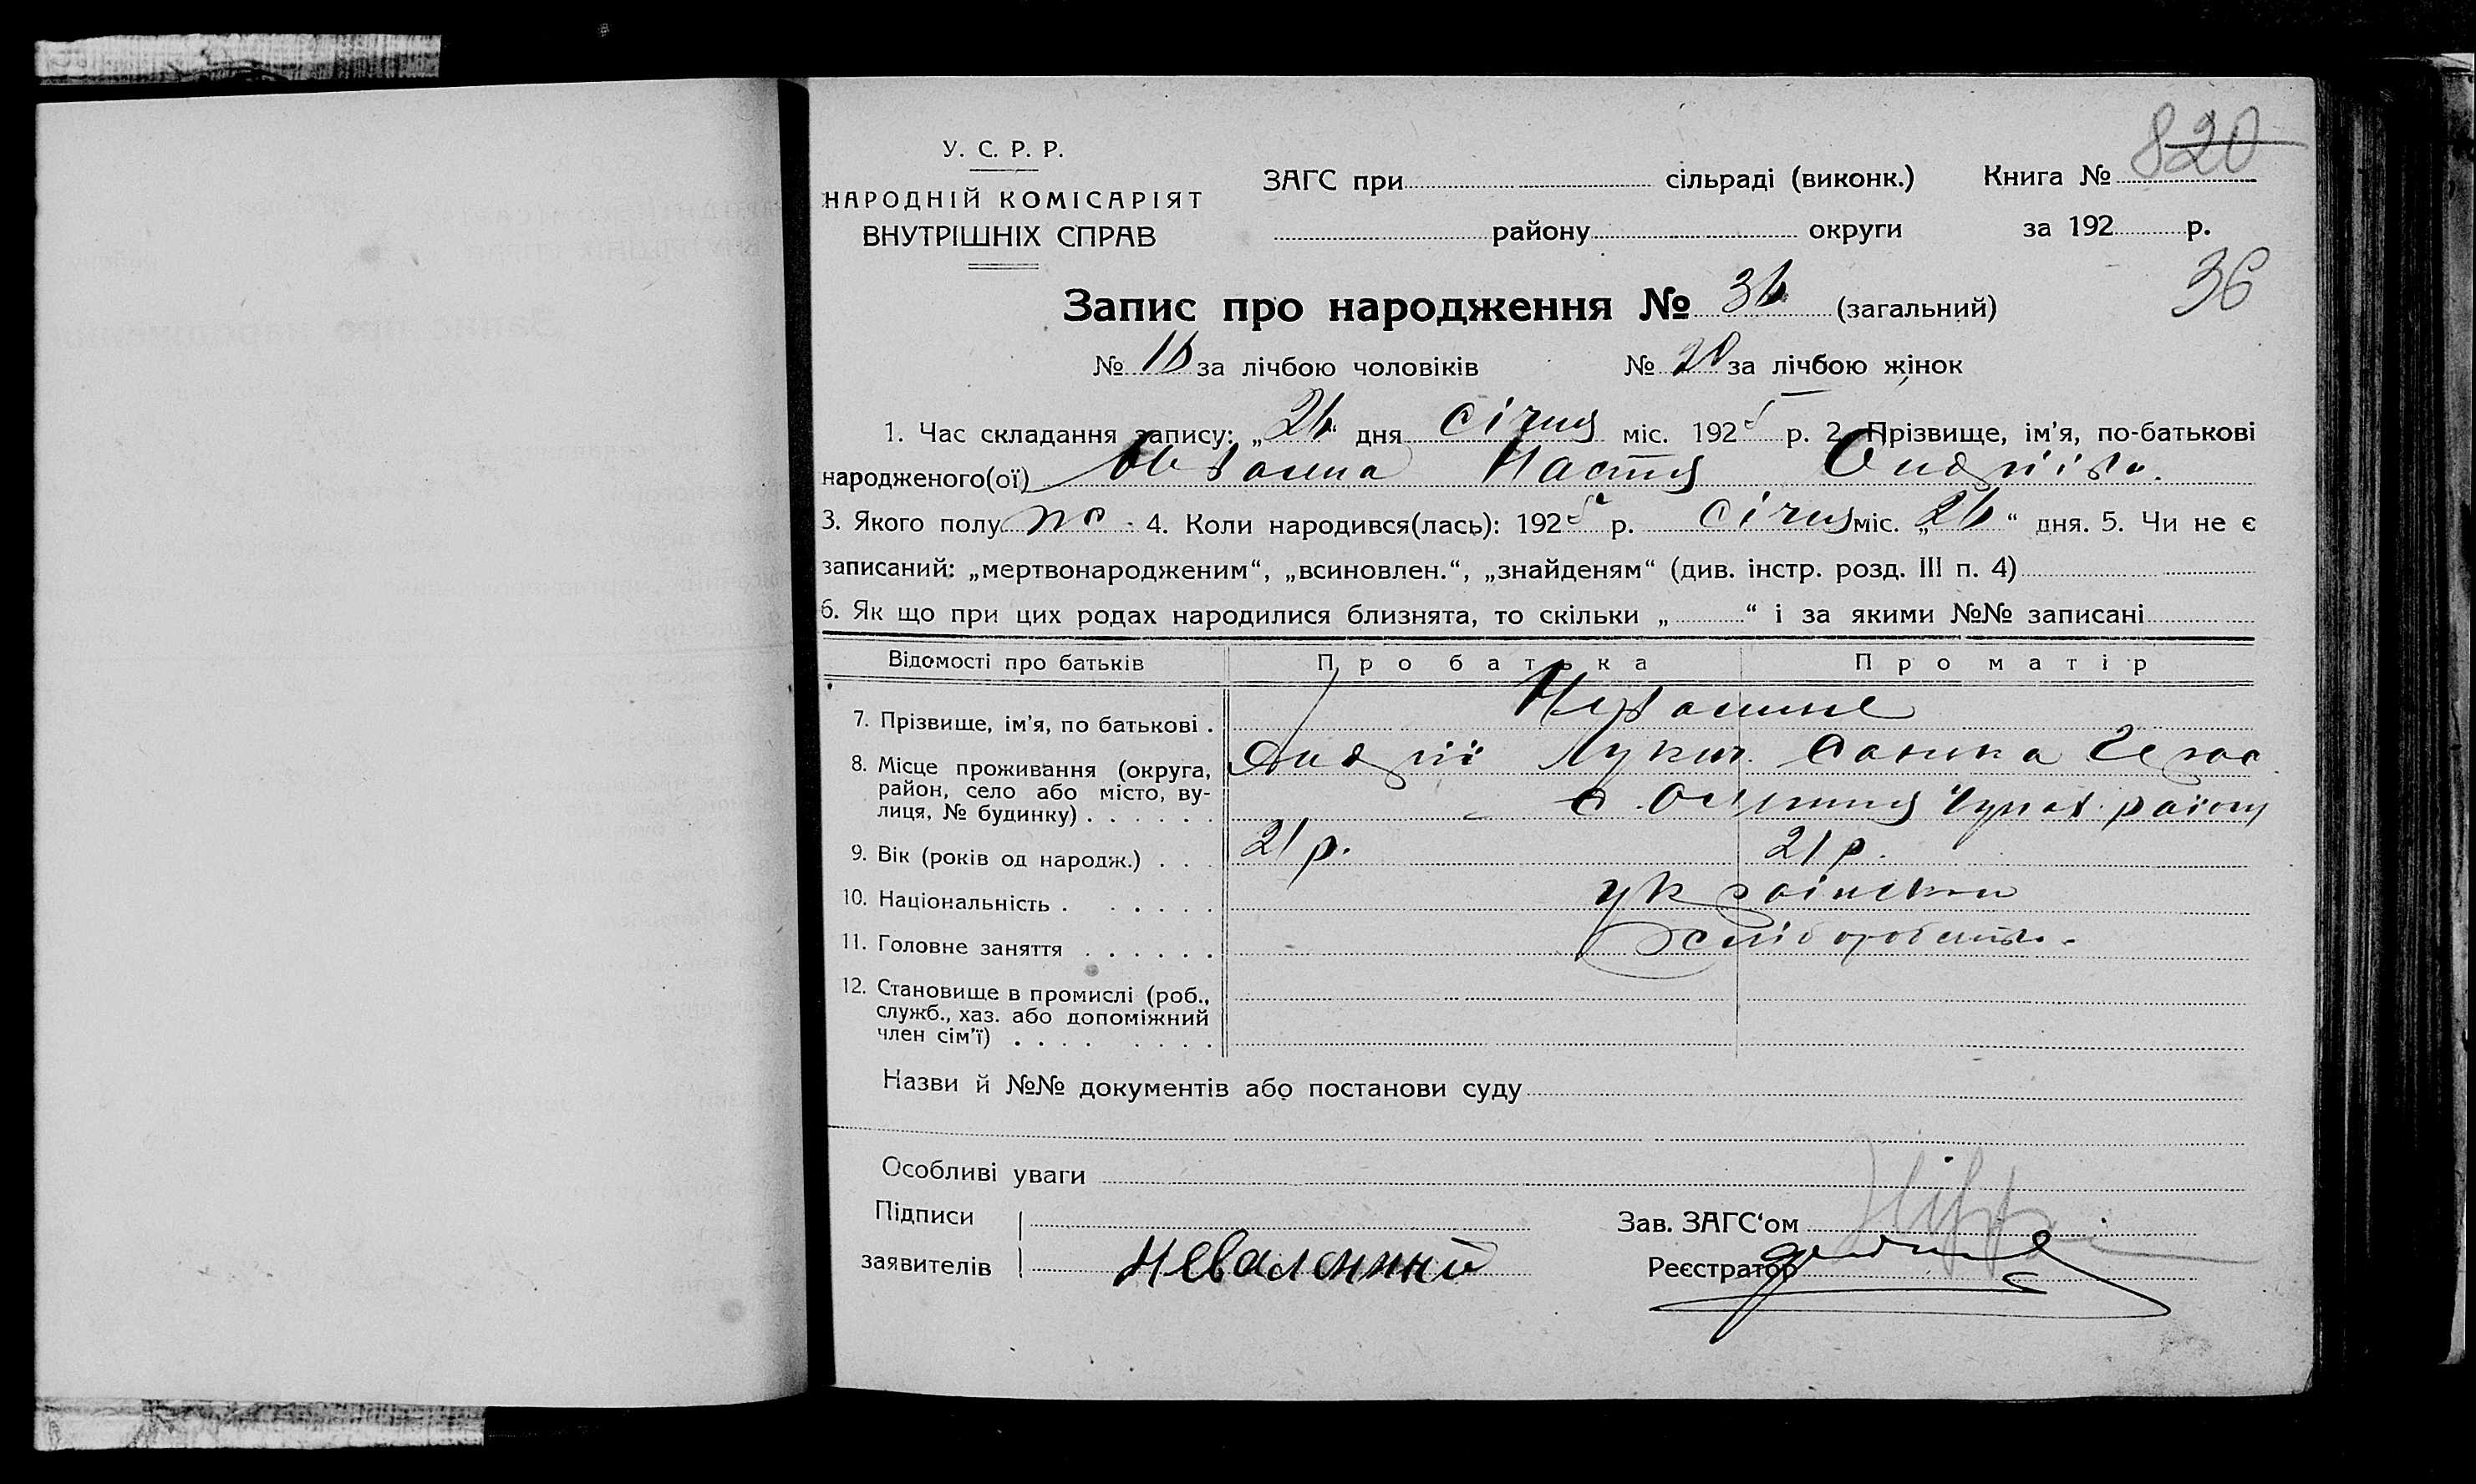 820
У. С. Р. Р.
НАРОДНІЙ КОМІСАРІЯТ
ВНУТРІШНІХ СПРАВ
ЗАГС при сільраді (виконк.) Книга №
району округи за 192 р.
36
Запис про народження № 36 (загальний)
№ 16 за лічбою чоловіків № 20 за лічбою жінок
1. Час складання запису: „26“ дня Січня міс. 1925 р. 2. Прізвище, ім’я, по-батькові
народженого(ої) Настя
3. Якого полу 4. Коли народився(лась): 1925 р. Січня міс. „26“ дня. 5. Чи не є
записаний: „мертвонародженим“, „всиновлен.“, „знайденям“ (див. інстр. розд. III п. 4)
6. Як що при цих родах народилися близнята, то скільки „ “ і за якими №№ записані
Відомості про батьків Про батька Про матір
7. Прізвище, ім’я, по батькові .
8. Місце проживання (округа, Андрій
район, село або місто, ву-
лиця, № будинку) . . . . . . району
9. Вік (років од народж.) . . . 21 р. 21 р.
10. Національність . . . . . .
11. Головне заняття . . . . . .
12. Становище в промислі (роб.,
служб., хаз. або допоміжний
член сім’ї) . . . . . . . .
Назви й №№ документів або постанови суду
Особливі уваги
Підписи
Зав. ЗАГС‘ом
заявителів Неваленний
Реєстратор